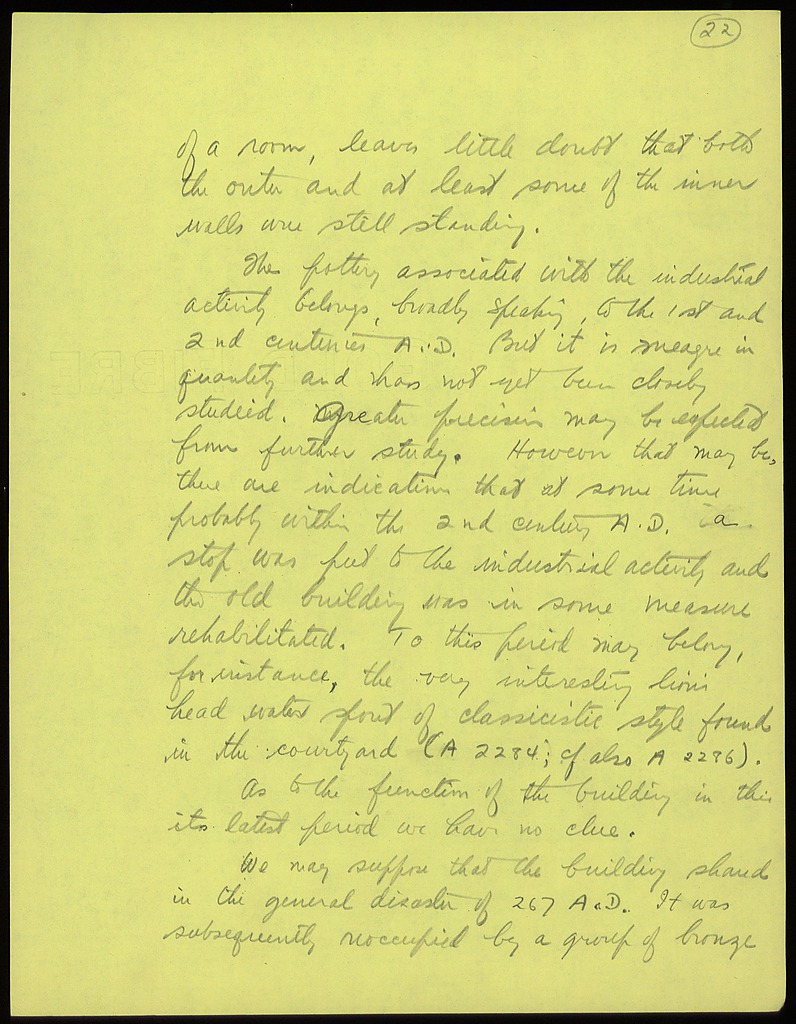 22
of a room, leaves little doubt that both
the outer and at least some of the inner
walls were still standing.
The pottery associated with the industrial
activity belongs, broadly speaking, to the 1st and
2nd centuries A.D. But it is meagre in
quantity and has not yet been closely
studied. Greater precision may be expected
from further study. However that may be,
there are indications that at some time
probably within the 2nd century A.D. a
stop was put to the industrial activity and
the old building was in some measure
rehabilitated. To this period may belong,
for instance, the very interesting lion's
head water spout of classicistic style found
in the courtyard (A 2284; cf also A 2286).
As to the function of the building in this
its latest period we have no clue.
We may suppose that the building shared
in the general disaster of 267 A.D. It was
subsequently reoccupied by a group of bronze